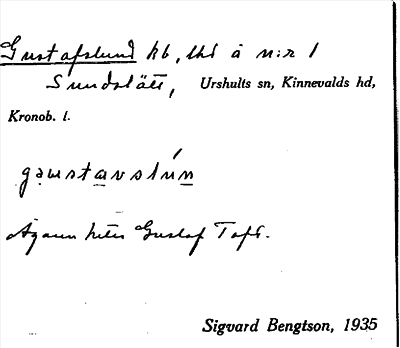 Gustafslund hb, lht å n:r 1
Sundslätt, Urshults sn, Kinnevalds hd,
Kronob. l.
gəustavslún
Ägaren heter Gustaf Toft.
Sigvard Bengtson, 1935